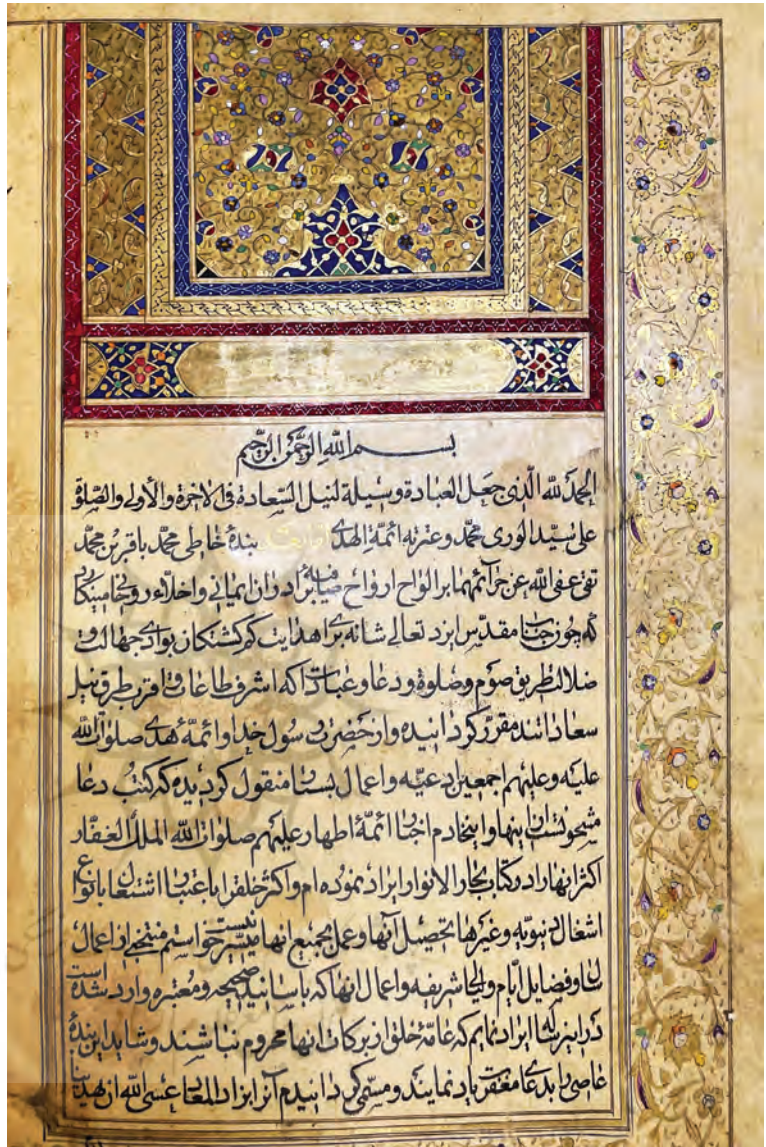 بسم الله الرحمن الرحیم
الحمد لله الذی جعل العبادة وسیلة لنیل السعادة فی الاخرة والأولی والصلوة
علی سید الوری محمد وعترته ائمة الهدی اما بعد بندهٔ خاطی محمد باقر بن محمد
تقی عفی الله عن جرائمهما بر الواح ارواح صافیهٔ برادران ایمانی واخلاء روحانی مینکارد
که چون جناب مقدس ایزد تعالی شانه برای هدایت کم کشتکان بوادی جهالت و
ضلالت طریق صوم وصلوة ودعا وعبادت را که اشرف طاعات واقرب طرق نیل
سعادتند مقرر کردانیده واز حضرت رسول خدا وائمهٔ هدی صلوات الله
علیه وعلیهم اجمعین ادعیه واعمال بسیار منقول کردیده که کتب دعا
مشحونست باینها واین خادم اخبار ائمهٔ اطهار علیهم صلوات الله الملک الغفار
اکثر انها را در کتاب بحار الانوار ایراد نموده ام واکثر خلق را باعتبار اشتغال بانواع
اشغال دنیویه وغیرها تحصیل آنها وعمل بجمیع انها میسر نیست خواستم منتخبی از اعمال
سال وفضایل ایام ولیالی شریفه واعمال انها که باسانید صحیحه ومعتبره وارد شده است
در این رساله ایراد نمایم که عامهٔ خلق از برکات انها محروم نباشند وشاید این بندهٔ
عاصی را بدعای مغفرت یاد نمایند ومسمی کردانیدم آنرا بزاد المعاد عسی الله ان یهدینا